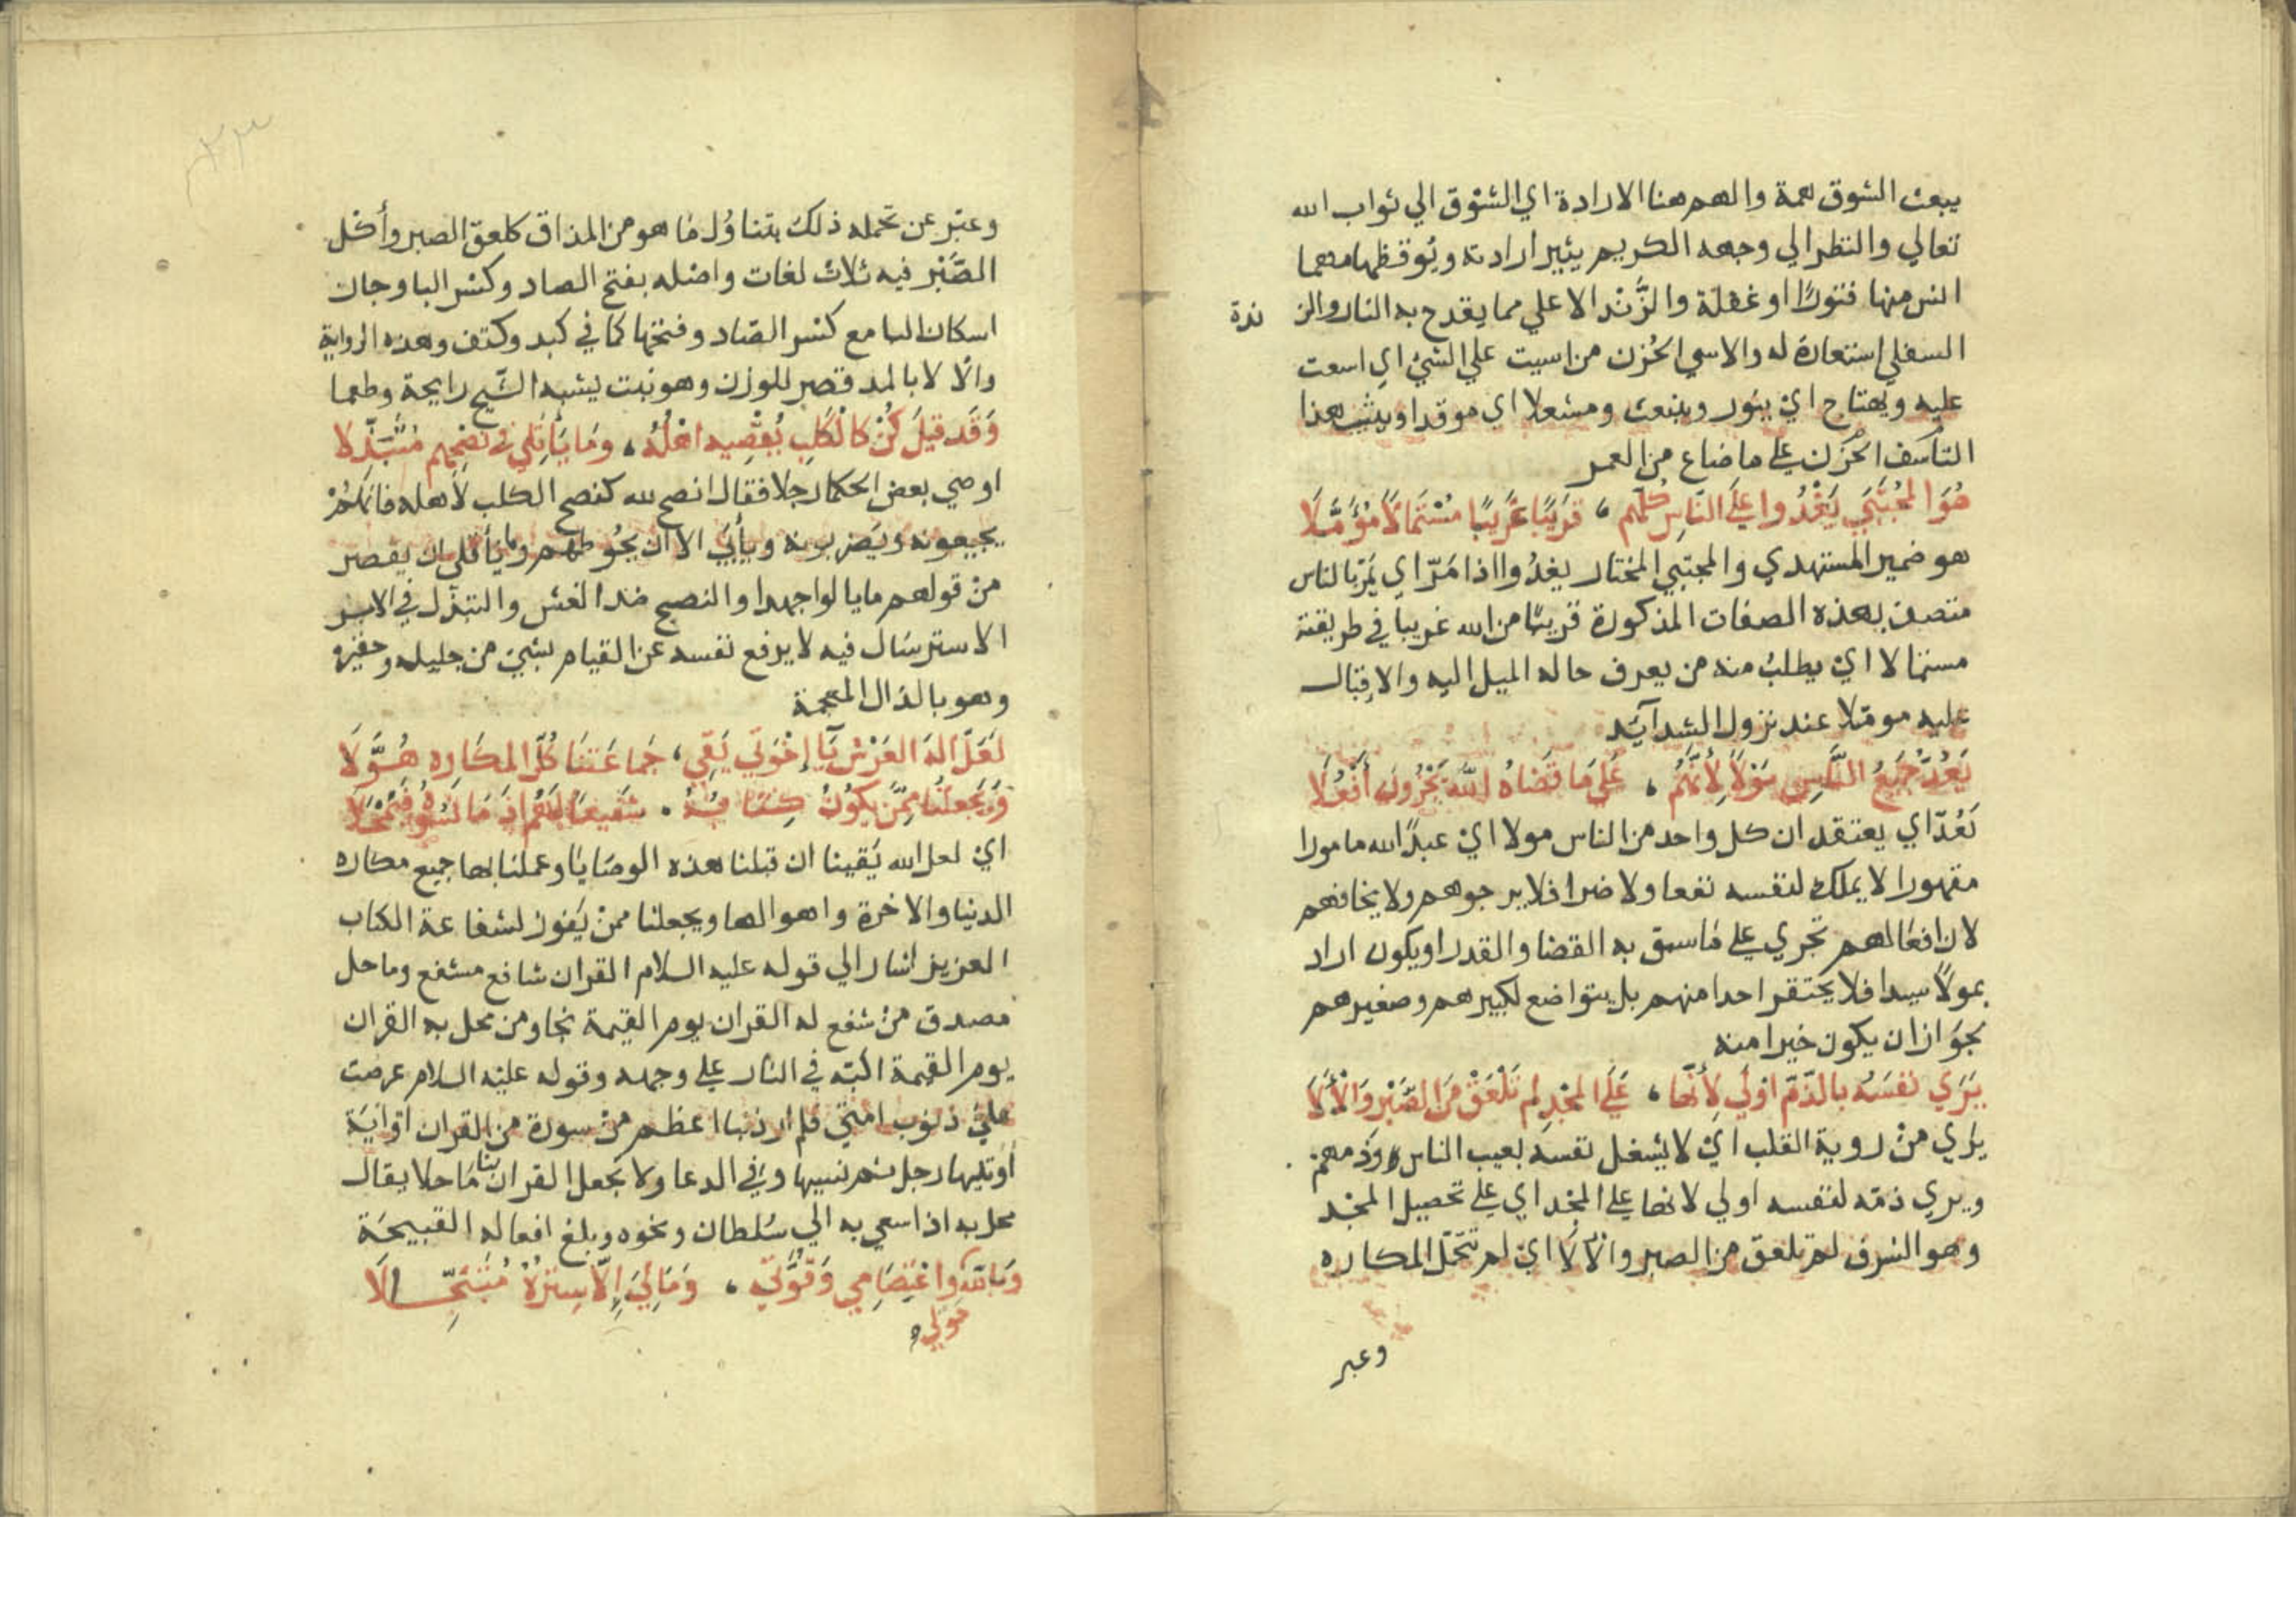 يبعث الشوق همة والهم هنا الارادة اي الشوق الي ثواب الله
تعالي والنظر الي وجهه الكريم يثير ارادته ويوقظها مهما
انس منها فتورًا او غفلة والزَّند الاعلي مما يقدح به النار والز ندة
السفلي استعارة له والاسي الحُزن من اسيت علي الشئ اي اسعت
عليه ويهتاج اي يثور وينبعث ومشعلا اي موقدا ويثب هذا
التأسف الحزن علي ما ضاع من العمر
هُوَ المُجْتَبَي يَغْدُوا عَلَي النَّاسِ كُلّهم ، قَرِيبًا غَرِيبًا مُسْتَمَالًا مُؤَمَّلَا
هو ضمير المستهدي والمجتبي المختار يغدُوا اذا مَرّ اي يَمُرّ بالناس
متصف بهذه الصفات المذكورة قريبًا من الله غريبا في طريقته
مستمالا اي يطلبُ منه من يعرف حاله الميل اليه والاقبال
عليه مومّلا عند نزول الشدايد
يَعُدُّ جَمِيعَ النَّاسِ مَوْلًا لِأَنَّهُم ، عَلَي مَا قَضَاهُ اللهُ يُجْرُونَ أَفْعُلَا
يَعُدّ اي يعتقد ان كل واحد من الناس مولا اي عبدًا لله مامورا
مقهورا لا يملك لنفسه نفعا ولا ضرا فلا يرجوهم ولا يخافهم
لان افعالهم تجري علي ما سبق به القضا والقدر او يكون اراد
بمولًا سيدا فلا يحتقر احدا منهم بل يتواضع لكبيرهم وصغيرهم
بجواز ان يكون خيرا منه
يَرَي نَفسَهُ بالذّمّ اولَي لِأَنَّها ، عَلَي المَجْدِ لم تَلْعَقْ مِنَ الصَّبْرِ وَالْأَلَا
يري من روية القلب اي لا يشغل نفسه بعيب الناس وذمهم
ويري ذمّه لنفسه اولي لانها علي المجد اي علي تحصيل المجد
وهو الشرف لم تلعق من الصبر والألا اي لم تتحمّل المكاره
وعبر
وعبّر عن تحمله ذلك بتناوُل ما هو من المذاق كلعق الصبر وأكل
الصَّبْر فيه ثلاث لغات واصله بفتح الصاد وكسر البا وجان
اسكان البا مع كسر الصّاد وفتحها كما في كبد وكتف وهذه الرواية
والألا بالمد قصر للوزن وهو نبت يشبه الشّيح رايحة وطعما
وَقَد قيلَ كُنْ كَالكَلبِ يُقْصِيهِ اهْلُهُ ، وَمَا يَأتَلي في نُصْحِهِم مُتَبَذِّلا
اوصي بعض الحكما رجلا فقال انصح لله كنصح الكلب لاهله فانهم
يجيعونه ويَضربونه ويأبي الا ان يحوُطهم وما يأتلي ان يقصر
من قولهم ما يالوا جهدا والنصح ضد الغش والتبذّل في الامر
الاسترسال فيه لا يرفع نفسه عن القيام بشئ من جليله وحقيره
وهو بالذال المعجمة
لَعَلّ الهَ العَرْش يَا إخْوَتي يَقِي ، جَمَاعَتَنَا كُلّ المكَارِهِ هُوَّلَا
وَيَجعَلُنَا مِمَّن يَكُونُ كِتَابُهُ ، شَفِيعًا لَهُم اذ مَا نَسُوهُ فَيَمْحَلَا
اي لعل الله يَقينا ان قبلنا هذه الوصايا وعملنا بها جميع مكاره
الدنيا والاخرة واهوالها ويجعلنا ممن يَفوز لشفاعة الكتاب
العزيز اشار الي قوله عليه السلام القران شافع مشفع وماحل
مصدق من شفع له القران يوم القيمة نجا ومن محل به القران
يوم القيمة اكبّه في النار علي وجهه وقوله عليه السلام عرضت
علي ذنوب امتي فلم ار ذنبا اعظم من سورة من القران او اية
اوتيها رجل ثم نسيها وفي الدعا ولا تجعل القران بنا ماحلا يقال
محل به اذا سعي به الي سُلطان ونحوه وبلغ افعاله القبيحة
وَبِاللهِ حَوْلِي وَاعْتِصَامِي وَقُوَّتِي ، وَمَا لِيَ إِلَّا سِتْرُهُ مُتَجَلِّلَا